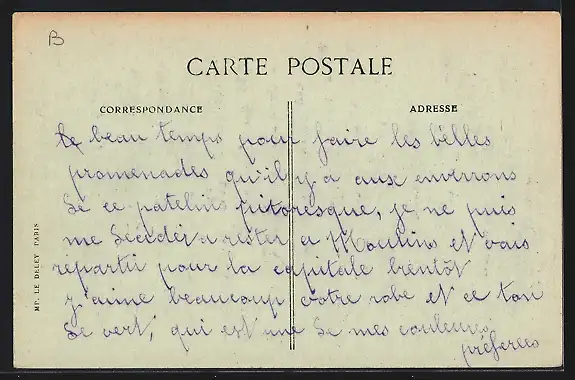 B
CARTE POSTALE
CORRESPONDANCE
ADRESSE
le beau temps pour faire les belles
promenades qu'il y a aux environs
de ce patelin pitoresque, je ne puis
me décider a rester a Moulins et vais
repartir pour la capitale bientôt
j'aime beaucoup votre robe et ce ton
de vert, qui est une de mes couleures
préferees
MP. LE DELEY PARIS